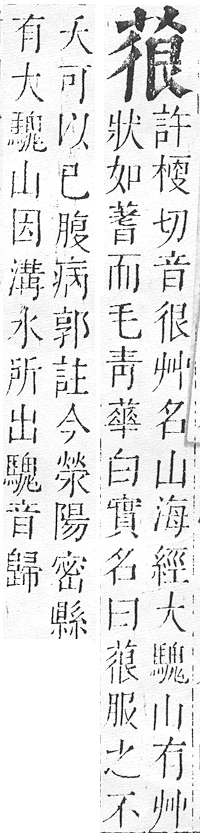 許梗切音很艸名山海經大騩山有艸
狀如蓍而毛靑蕐白實名曰服之不
夭可以巳腹病郭註今滎陽密縣
有大騩山因溝水所出騩音歸